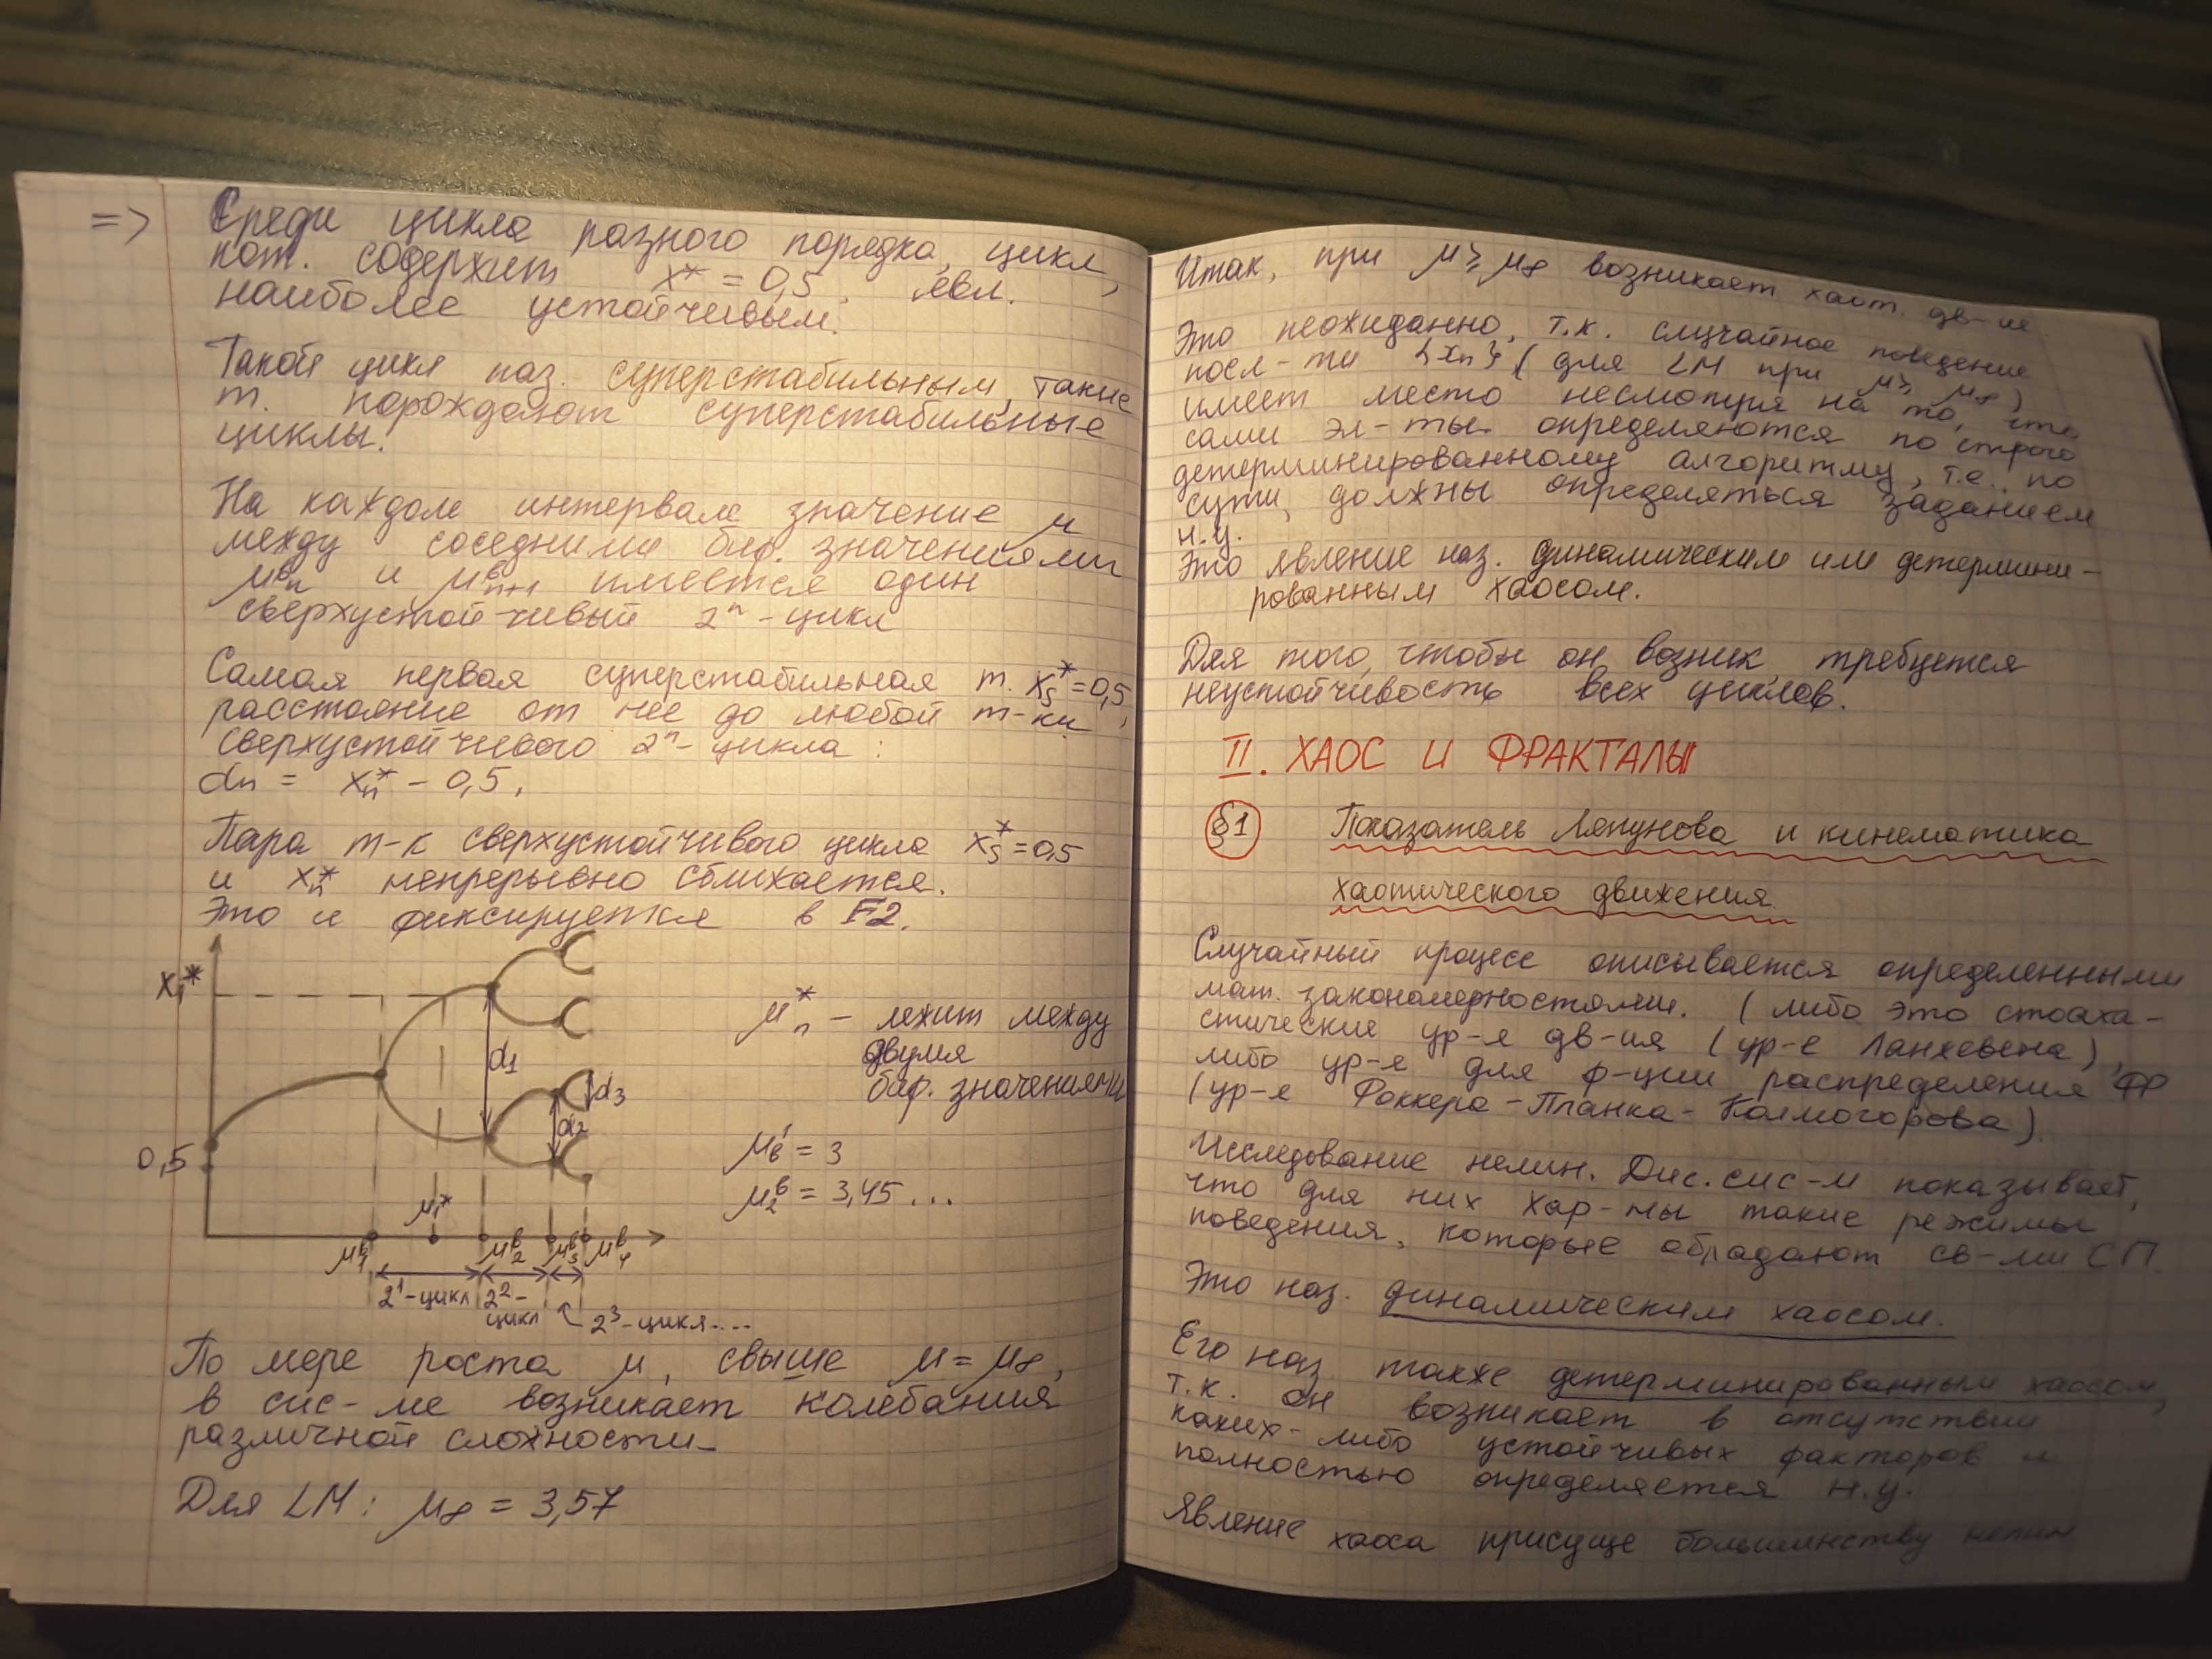 => Среди цикла разного порядка, цикл,
кот. содержит x* = 0,5, явл.
наиболее устойчивым.
Такой цикл наз. суперстабильным, такие
т. порождают суперстабильные
циклы.
На каждом интервале значение μ
между соседними биф. значениями
μⁿᵇ и μᵇₙ₊₁ имеется один
сверхустойчивый 2ⁿ-цикл
Самая первая суперстабильная т. x₅* = 0,5,
расстояние от нее до любой т-ки
сверхустойчивого 2ⁿ-цикла:
dn = xₙ* - 0,5.
Пара т-к сверхустойчивого цикла x₅* = 0,5
и xₙ* непрерывно сближается.
Это и фиксируется в F2.
x₁*
0,5
d₁
d₂
d₃
μ₁*
μ₁ᵇ μ₂ᵇ μ₃ᵇ μ₄ᵇ
2¹-цикл 2²-
цикл 2³-цикл....
μₙ* - лежит между
двумя
биф. значениями
μᵇ¹ = 3
μ₂ᵇ = 3,45...
По мере роста μ, свыше μ = μ∞,
в сис-ме возникает колебания
различной сложности
Для LM: μ∞ = 3,57
Итак, при μ ≥ μ∞ возникает хаот. дв-ие.
Это неожиданно, т.к. случайное поведение
посл-ти {xn} (для LM при μ ≥ μ∞)
имеет место несмотря на то, что
сами эл-ты определяются по строго
детерминированному алгоритму, т.е. по
сути, должны определяться заданием
н.у.
Это явление наз. динамическим или детермини-
рованным хаосом.
Для того, чтобы он возник требуется
неустойчивость всех циклов.
II. ХАОС И ФРАКТАЛЫ
§1 Показатель Ляпунова и кинематика
хаотического движения.
Случайный процесс описывается определенными
мат. закономерностями. (либо это стоха-
стические ур-я дв-ия (ур-е Ланжевена),
либо ур-е для ф-ции распределения ФР
(ур-е Фоккера-Планка-Колмогорова).
Исследование нелин. Дис. сис-м показывает,
что для них хар-ны такие режимы
поведения, которые обладают св-ми СП.
Это наз. динамическим хаосом.
Его наз. также детерминированным хаосом,
т.к. он возникает в отсутствии
каких-либо устойчивых факторов и
полностью определяется н.у.
Явление хаоса присуще большинству нелин.